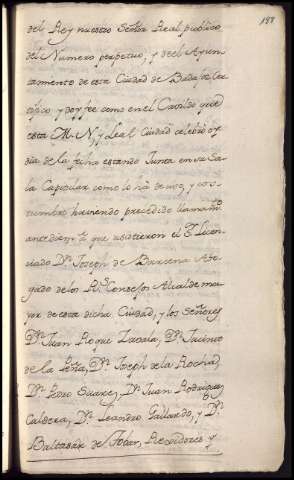 188
del Rey nuestro Señor Real publico
del Numero perpetuo, y del Ayun-
tamiento de esta Ciudad de Badajoz Cer
tifico, y doy fee como en el Cavildo que
esta M. N. y Leal Ciudad celebró oy
dia de la fecha estando Junta en su Sa
la Capitular como lo há de uso, y cos-
tumbre, haviendo precedido llamamto
antediem, a que asistieron el Sr. Licen-
ciado Dn. Joseph de Barrena Abo-
gado de los Rs. Consejos Alcalde ma-
yor de esta dicha Ciudad, y los Señores
Dn. Juan Roque Zavala, Dn. Jacinto
de la Peña, Dn. Joseph de la Rocha,
Dn. Pedro Suarez, Dn. Juan Rodriguez
Caldera, Dn. Leandro Gallardo, y Dn.
Balthasar de Tobar, Rexidores y